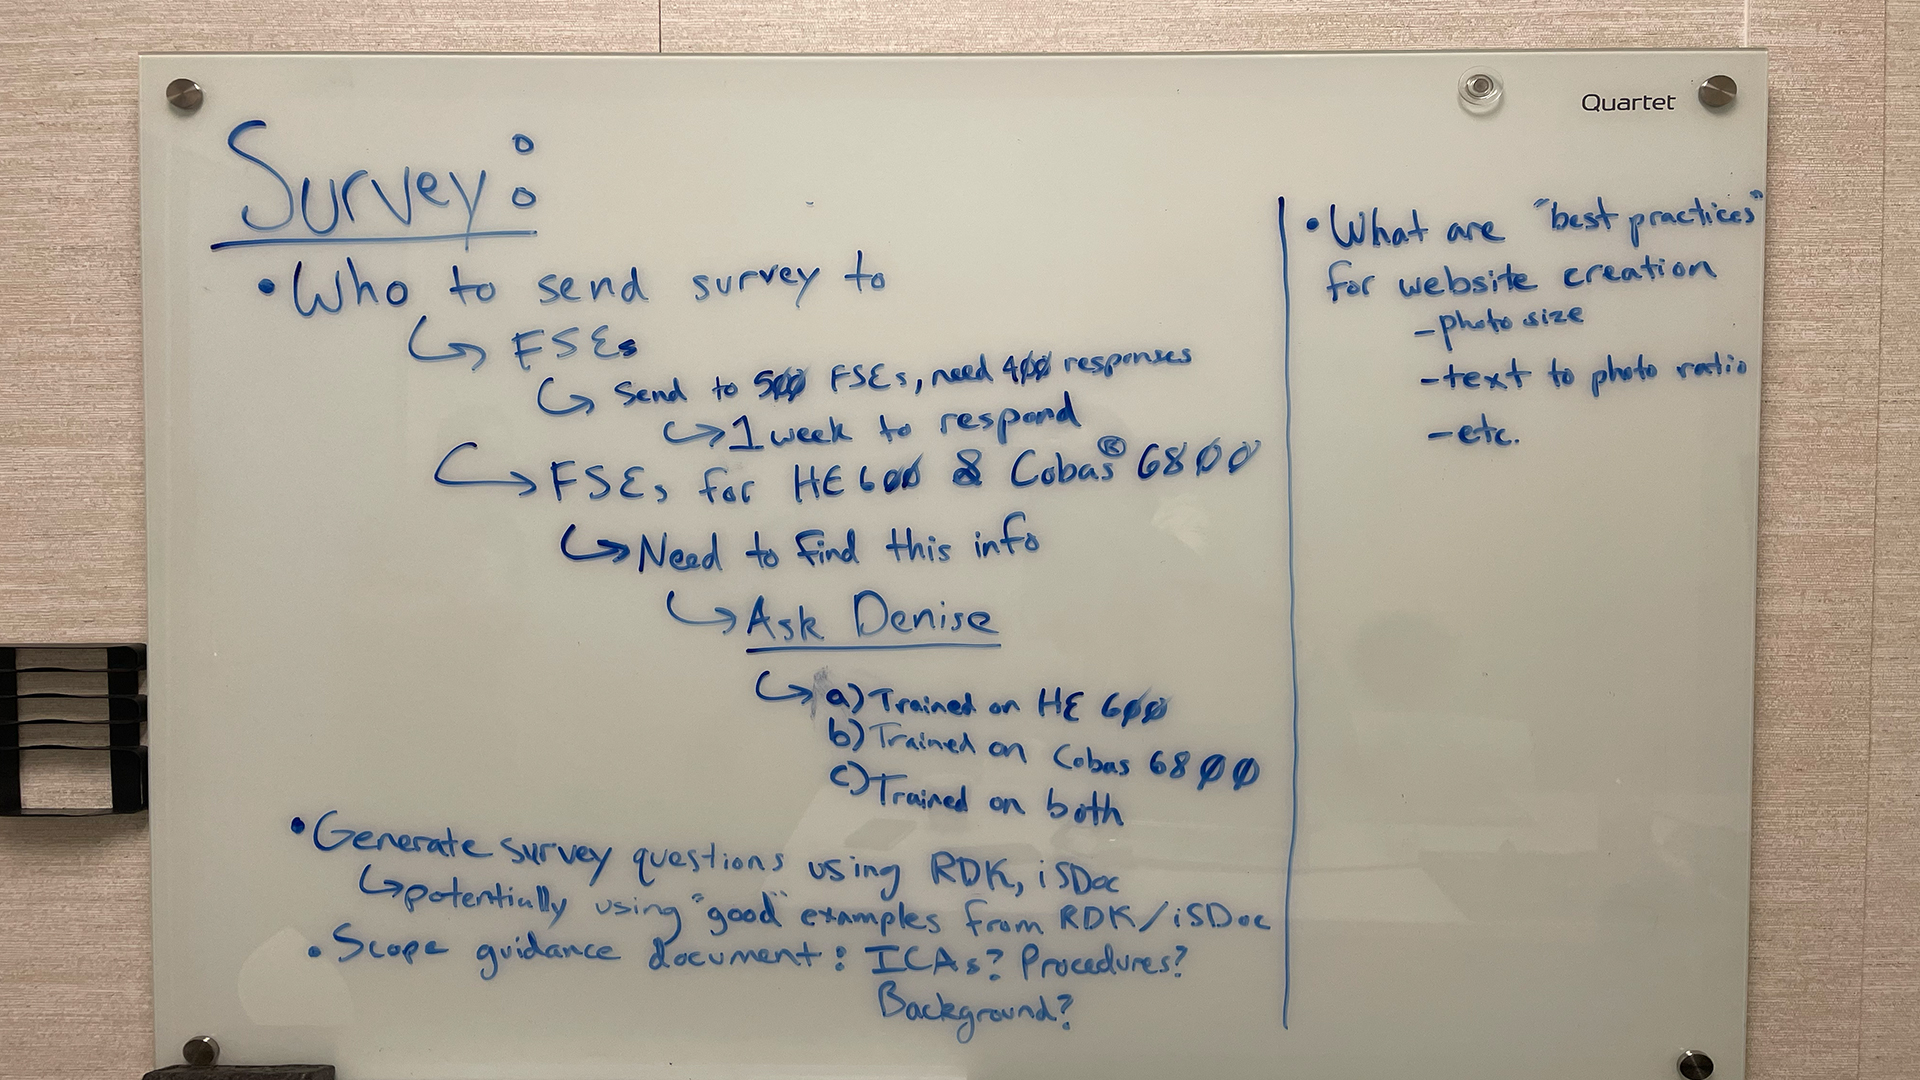 Quartet
Survey:
• Who to send survey to
↳ FSEs
↳ Send to 500 FSEs, need 400 responses
↳ 1 week to respond
↳ FSEs for HE 600 & Cobas® 6800
↳ Need to find this info
↳ Ask Denise
↳ a) Trained on HE 600
b) Trained on Cobas 6800
c) Trained on both
• Generate survey questions using RDK, iSDoc
↳ potentially using "good" examples from RDK/iSDoc
• Scope guidance document: ICAs? Procedures?
Background?
• What are "best practices"
for website creation
- photo size
- text to photo ratio
- etc.